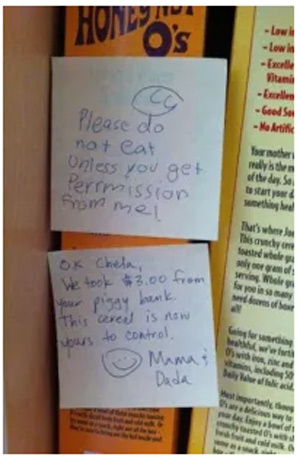 HONEY NUT
O's
Please do
not eat
unless you get
Permmission
from me!
OK Chela,
We took $3.00 from
your piggy bank.
This cereal is now
yours to control.
Mama +
Dada
- Low in
- Low in
- Excelle
Vitamin
- Excellen
- Good So
- No Artific
Your mother
really is the m
of the day. So
to start your d
something heal
That's where Joe
This crunchy cere
toasted whole gra
only one gram of s
serving. Whole gra
for you in so many
need dozens of boxe
all!
Going for something
healthful, we've forti
O's with iron, zinc and
vitamins, including 50
Daily Value of folic acid.
Most importantly, thoug
O's are a delicious way to
your day. Enjoy a bowl of
crunchy toasted O's with
fresh fruit and cold milk. Or